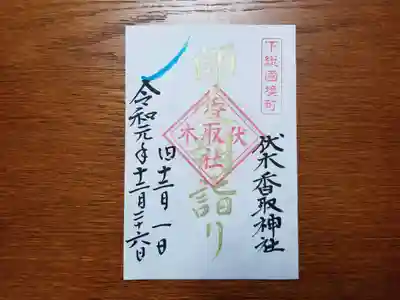 下総國境町
伏木香取神社
師走 詣り
伏木
香取社
旧十二月一日
令和元年十二月二十六日